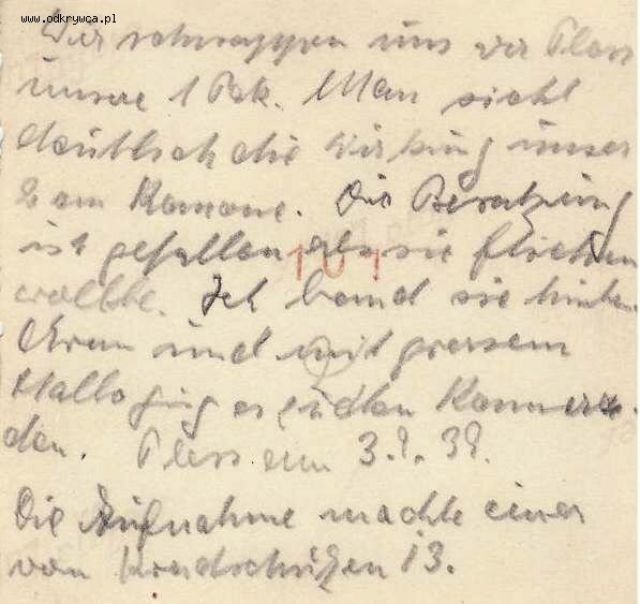 www.odkrywca.pl
Wir schnappen uns vor Pless
unsere 1 Pak. Man sieht
deutlich die Wirkung unser
2 cm Kanone. Die Besatzung
ist gefallen als sie fliehen
101
wollte. Ich band sie hinten
dran und mit grossem
Hallo ging es zu den Kamera-
den. Pless am 3.9.39.
Die Aufnahme machte einer
von Kradschützen 13.